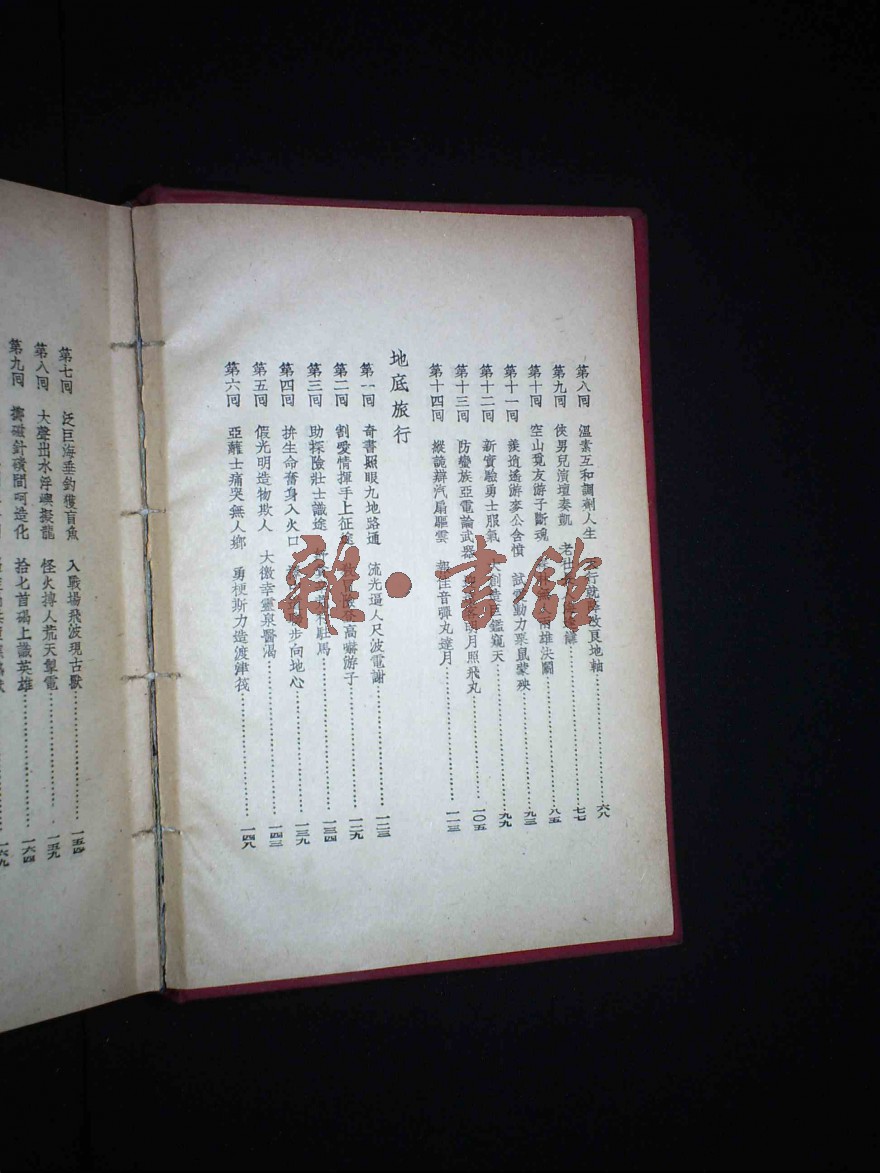 第八回 溫素互和調劑人生 行就 改良地軸 六八
第九回 俠男兒演壇奏凱 老 七七
第十回 空山覓友游子斷魂 雄決鬭 八五
第十一回 羨逍遙游麥公含憤 試 動力栗鼠蒙殃 九三
第十二回 新實驗勇士服氣 大創造巨鑑窺天 九九
第十三回 防蠻族亞電論武器 明月照飛丸 一〇五
第十四回 縱詭辯汽扇驅雲 報佳音彈丸達月 一一三
地底旅行
第一回 奇書照眼九地路通 流光逼人尺波電謝 一二三
第二回 割愛情揮手上征途 高嘯游子 一二九
第三回 助探險壯士識途 駐馬 一三四
第四回 拚生命奮身入火口 步向地心 一三九
第五回 假光明造物欺人 大徼幸靈泉醫渴 一四三
第六回 亞蘺士痛哭無人鄉 勇梗斯力造渡津筏 一四八
第七回 泛巨海垂釣獲盲魚 入戰場飛波現古獸 一五四
第八回 大聲出水浮嶼擬龍 怪火搏人荒天掣電 一五九
第九回 擲磁針礩間呵造化 拾匕首碣上識英雄 一六四
一六九
雜·書館